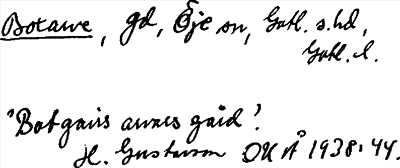 Botawe, gd, Öje sn, Gotl. s. hd,
Gotl. l.
'Botgairs annexs gård'.
H. Gustavson OUÅ 1938: 44.